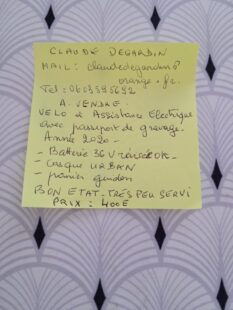 CLAUDE DEGARDIN
MAIL : claudedegardin@
orange.fr.
Tel : 
A VENDRE
VELO a Assistance Electrique
avec passeport de gravage.
Année 2020 -
- Batterie 36V révisée OK -
- Casque URBAN
- panier guidon
BON ETAT - TRÉS PEU SERVI
PRIX : 400€